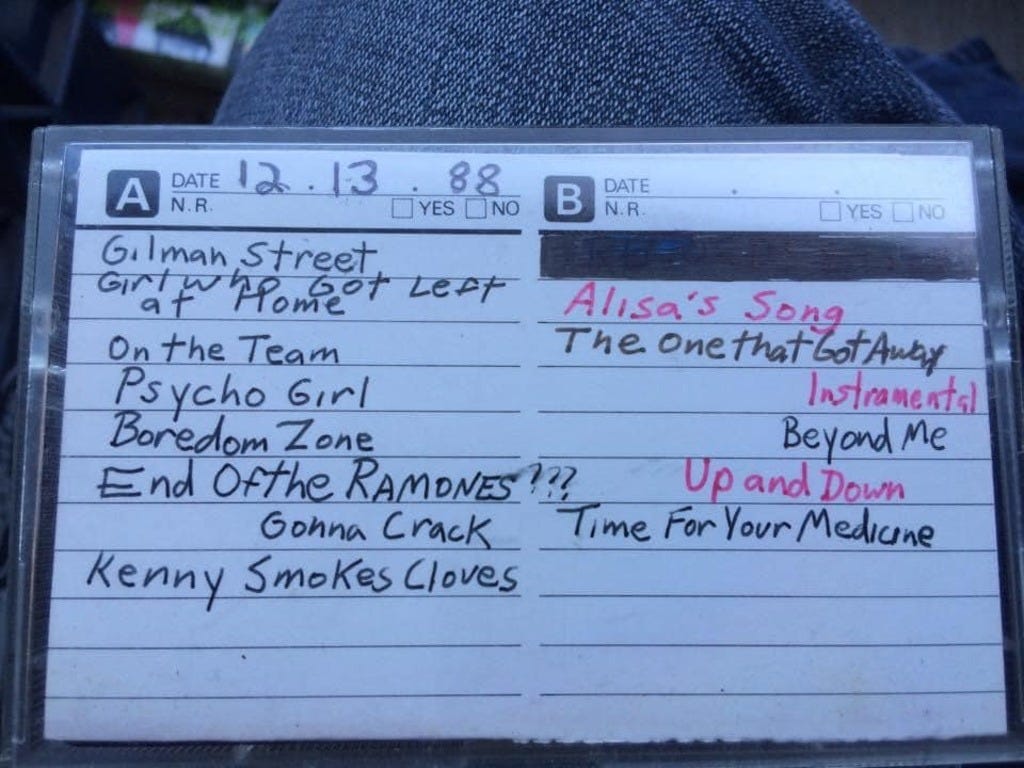 A DATE 12.13.88
N.R. YES NO
Gilman Street
Girl who Got Left
at Home
On the Team
Psycho Girl
Boredom Zone
End Of the RAMONES???
Gonna Crack
Kenny Smokes Cloves
B DATE . .
N.R. YES NO
Alisa's Song
The One that Got Away
Instramental
Beyond Me
Up and Down
Time For Your Medicine